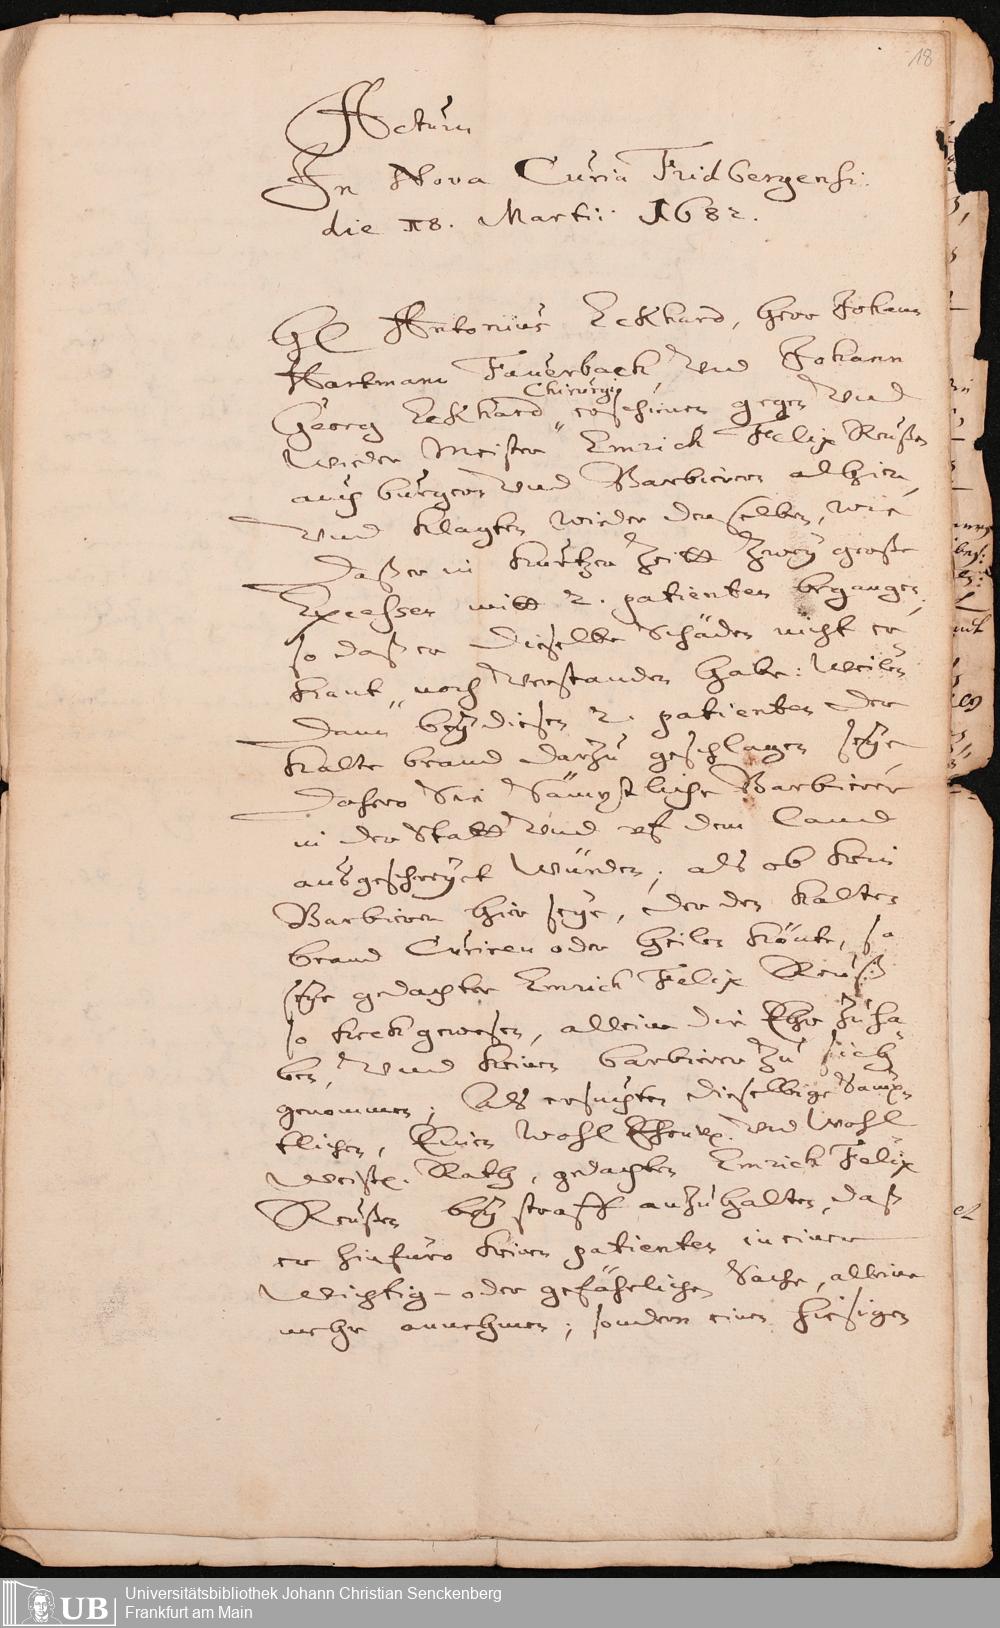 18
Actum
In Nova Curia Fridbergensi.
die 18. Martii 1682.
H. Antonius Eckhard, Herr Johann
Hartmann Fauerbach, Vnd Johann
Georg Eckhard Chirurgi erschienen gegen Vnd
Wieder Meister Emrich Felix Reußen
auch burgern Vnd Barbierern alhier,
Vnd klagten wieder denselben, wie
Daß er in kurtzer Zeitt Zwey große
Excessen mitt 2. patienten begangen,
so daß er dieselbe Schäden nicht er-
kant, noch Verstanden habe: Weilen
dann bey diesen 2. patienten der
kalte brand darzu geschlagen seye
Dahero Sie Sämptliche Barbierer
in der Statt Vnd vf dem Land
ausgeschreyet Würden, als ob kein
Barbierer hier seye, der den kalten
brand Curiren oder heilen könte, so
seye gedachter Emrich Felix Reuß
so keck gewesen, allein die Ehr Zu ha-
ben, Vnd keinen barbierer Zu sich
genommen; Als ersuchten dieselbige Sämp-
tlichen, Einen Wohl Ehrnv. Vnd Wohl
Weisen Rath, gedachten Emrich Felix
Reußen bey straff anzuhalten, daß
er hinfüro keinen patienten in einer
Wichtig- oder gefährlichen Sache, alleine
mehr annehmen; sondern einen hiesigen
UB
Universitätsbibliothek Johann Christian Senckenberg
Frankfurt am Main